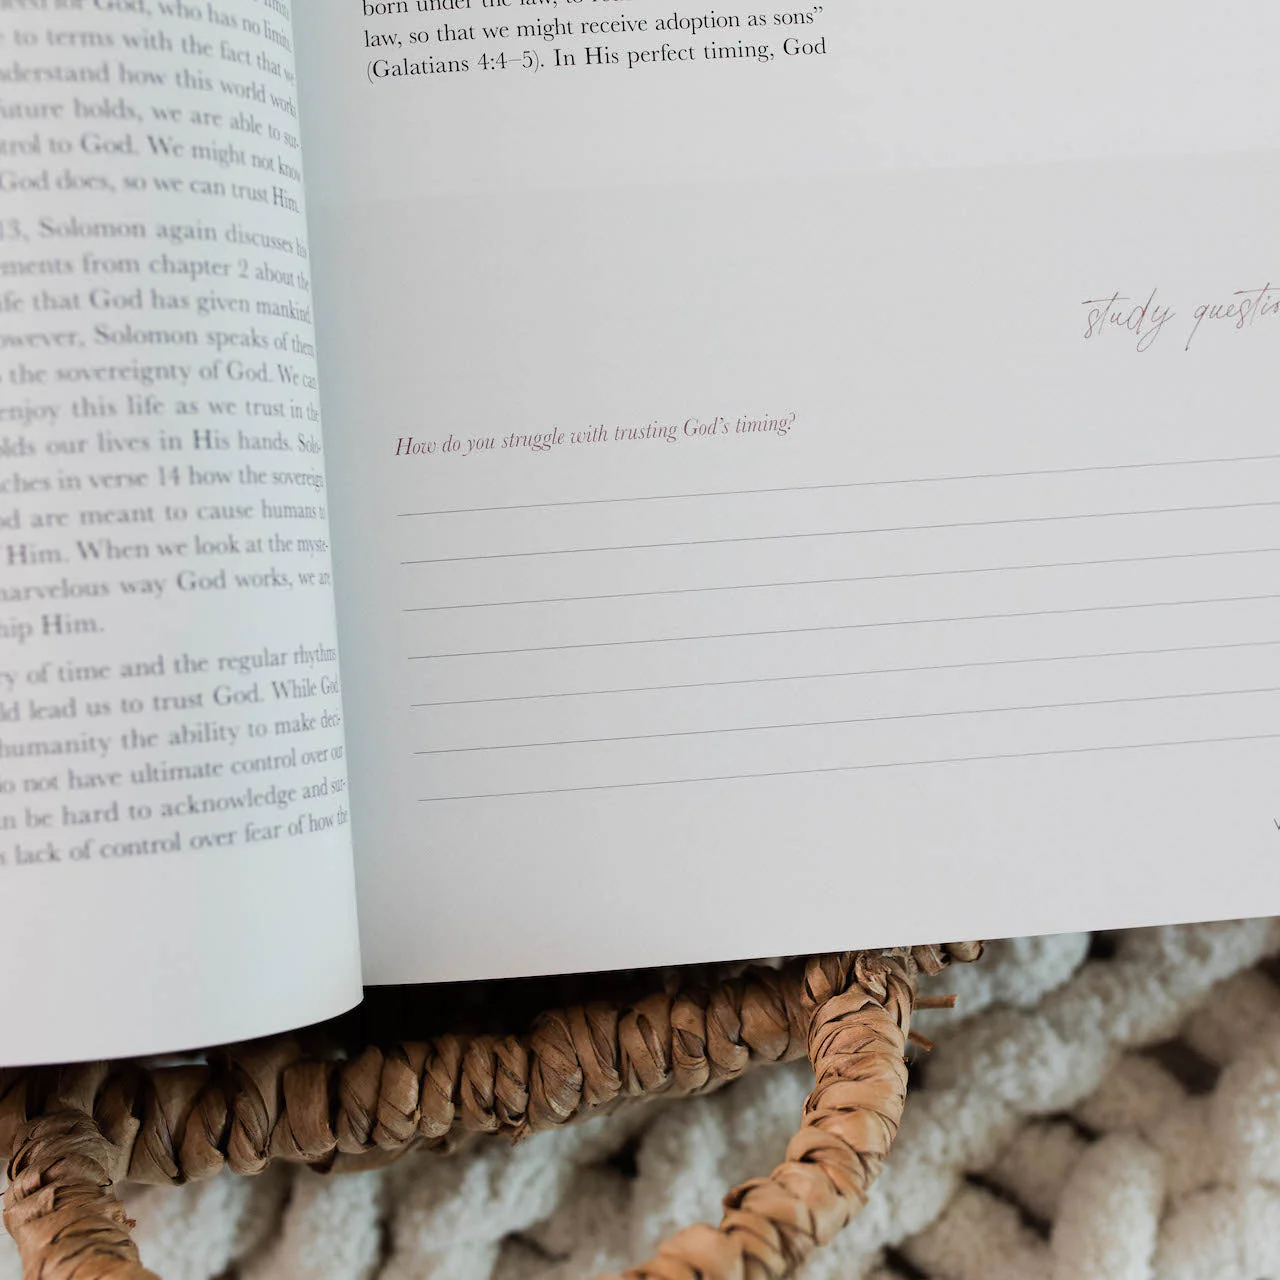 for God, who has no limits,
to terms with the fact that we
understand how this world works
future holds, we are able to sur-
control to God. We might not know
God does, so we can trust Him.
13, Solomon again discusses his
from chapter 2 about the
life that God has given mankind.
However, Solomon speaks of them
the sovereignty of God. We can
enjoy this life as we trust in the
holds our lives in His hands. Solo-
in verse 14 how the sovereign
are meant to cause humans to
Him. When we look at the myste-
marvelous way God works, we are
Him.
of time and the regular rhythms
lead us to trust God. While God
humanity the ability to make deci-
do not have ultimate control over our
be hard to acknowledge and sur-
lack of control over fear of how the
born under the law, to
law, so that we might receive adoption as sons”
(Galatians 4:4–5). In His perfect timing, God
study questio
How do you struggle with trusting God’s timing?